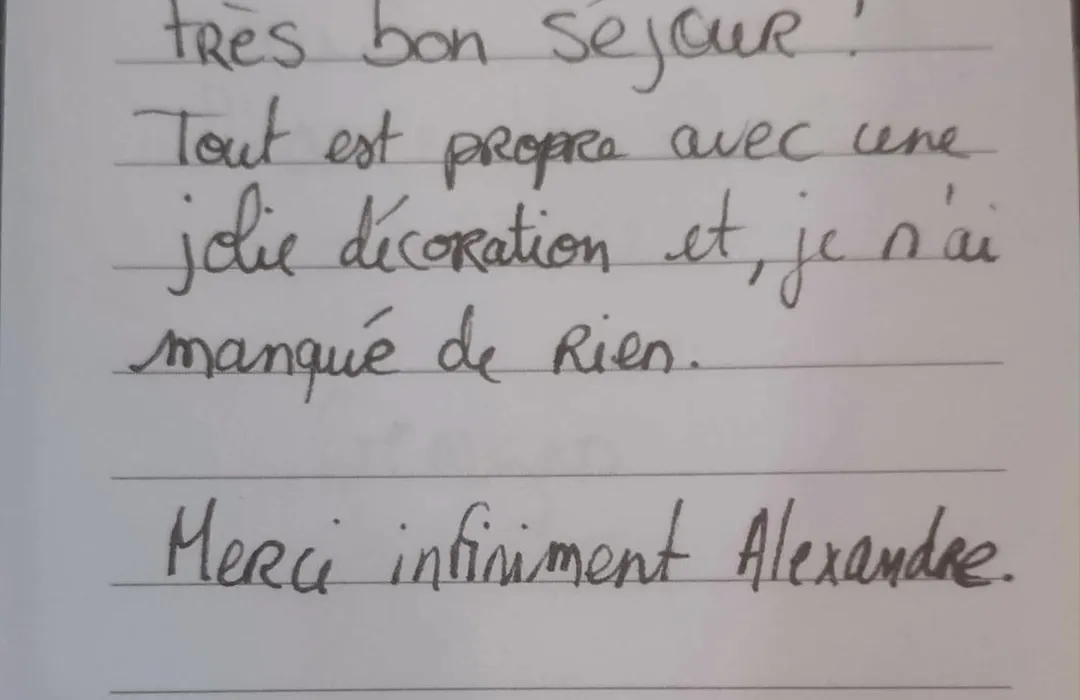 très bon séjour !
Tout est propre avec une
jolie décoration et, je n'ai
manqué de Rien.
Merci infiniment Alexandre.